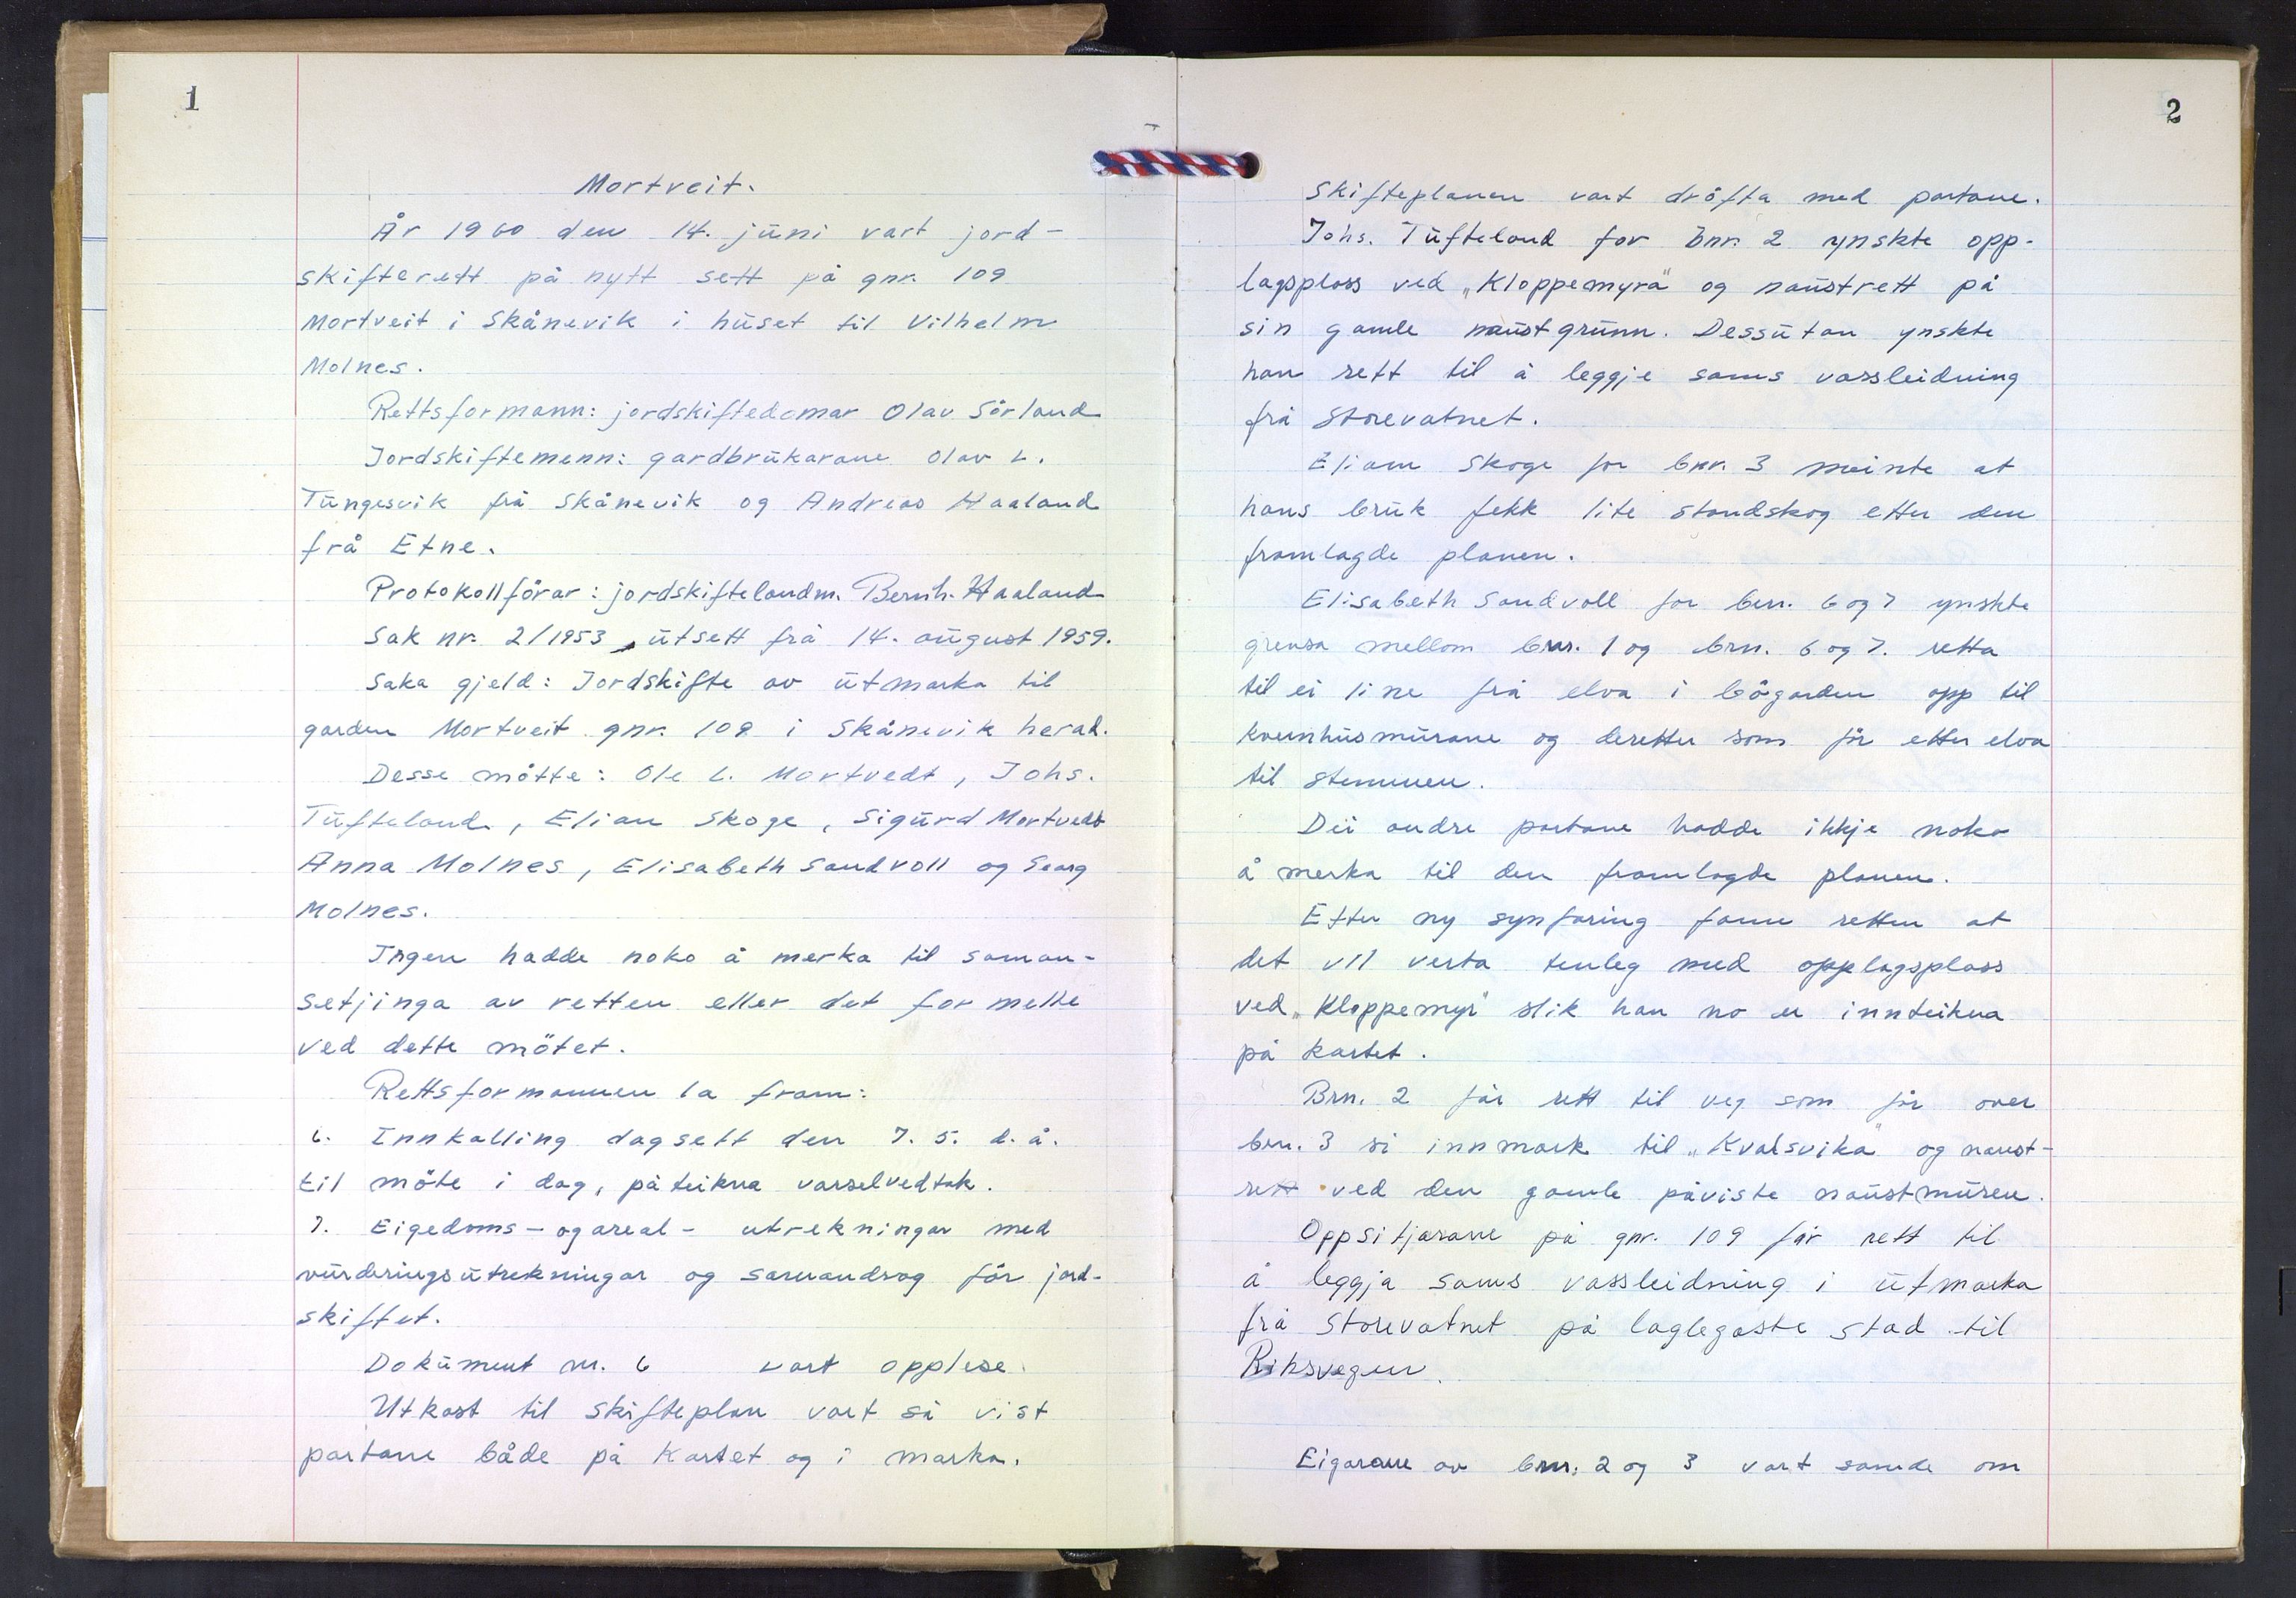 1
Mortveit.
År 1960 den 14. juni vart jord-
skifterett på nytt sett på gnr. 109
Mortveit i Skånevik i huset til Vilhelm
Molnes.
Rettsformann: jordskiftedomar Olav Sörland
Jordskiftemenn: gardbrukarane Olav L.
Tungesvik frå Skånevik og Andreas Haaland
frå Etne.
Protokollförar: jordskiftelandm. Bernh. Haaland
Sak nr. 2/1953, utsett frå 14. august 1959.
Saka gjeld: Jordskifte av utmarka til
garden Mortveit gnr. 109 i Skånevik herad.
Desse mötte: Ole L. Mortvedt, Johs.
Tufteland, Elian Skoge, Sigurd Mortvedt
Anna Molnes, Elisabeth Sandvoll og Georg
Molnes.
Ingen hadde noko å merka til saman-
setjinga av retten eller det formelle
ved dette mötet.
Rettsformannen la fram:
6. Innkalling dagsett den 7. 5. d. å.
til möte i dag, påteikna varselvedtak.
7. Eigedoms- og areal- utrekningar med
vurderingsutrekningar og samandrag för jord-
skiftet.
Dokument nr. 6 vart opplese.
Utkast til skifteplan vart så vist
partane både på kartet og i marka.
2
Skifteplanen vart dröfta med partane.
Johs. Tufteland for bnr. 2 ynskte opp-
lagsplass ved „Kloppemyra" og naustrett på
sin gamle naustgrunn. Dessutan ynskte
han rett til å leggje sams vassleidning
frå Storevatnet.
Eliam Skoge for bnr. 3 meinte at
hans bruk fekk lite standskog etter den
framlagde planen.
Elisabeth Sandvoll for brn. 6 og 7 ynskte
grensa mellom bnr. 1 og brn. 6 og 7. retta
til ei line frå elva i bögarden opp til
kvernhusmurane og deretter som för etter elva
til stemmen.
Dei andre partane hadde ikkje noko
å merka til den framlagde planen.
Etter ny synfaring fann retten at
det vil verta tenleg med opplagsplass
ved „Kloppemyr" slik han no er innteikna
på kartet.
Brn. 2 får rett til veg som för over
brn. 3 si innmark til „Kvalsvika" og naust-
rett ved den gamle påviste naustmuren.
Oppsitjarane på gnr. 109 får rett til
å leggja sams vassleidning i utmarka
frå Storevatnet på laglegaste stad til
Riksvegen.
Eigarane av bnr. 2 og 3 vart samde om